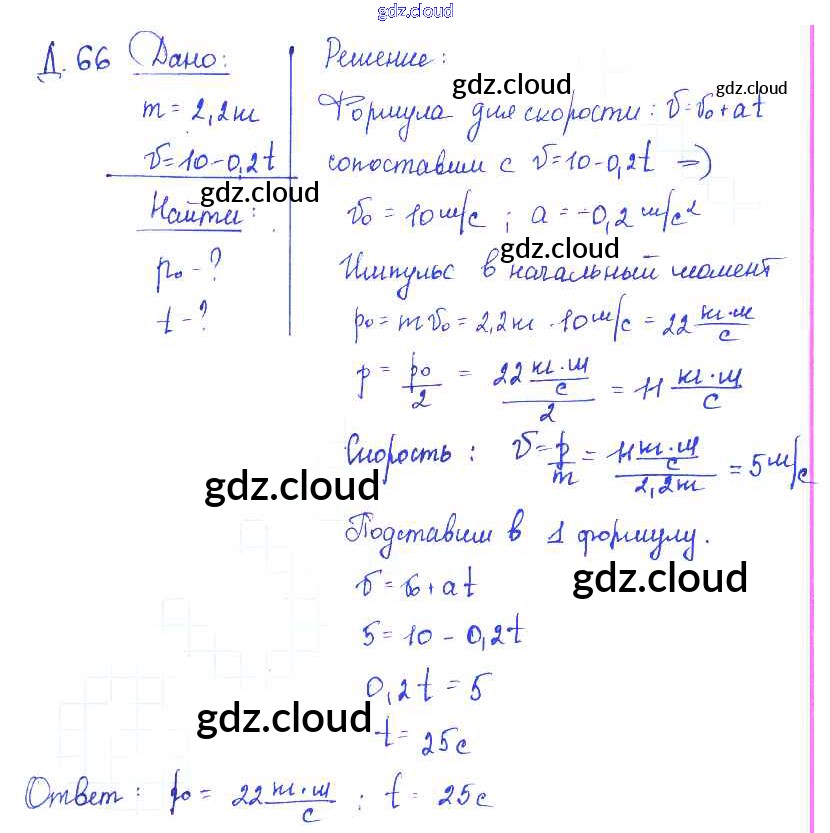 gdz.cloud
Д. 66 Дано:
m = 2,2 кг
v = 10 - 0,2t
Найти:
p₀ - ?
t - ?
Решение:
gdz.cloud
gdz.cloud
Формула для скорости: v = v₀ + at
сопоставим с v = 10 - 0,2t ⇒
gdz.cloud
v₀ = 10 м/с ; a = -0,2 м/с²
gdz.cloud
Импульс в начальный момент
p₀ = m v₀ = 2,2 кг · 10 м/с = 22 кг·м/с
p = p₀/2 = 22 кг·м/с / 2 = 11 кг·м/с
Скорость: v = p/m = 11 кг·м/с / 2,2 кг = 5 м/с
gdz.cloud
Подставим в 1 формулу.
v = v₀ + at
gdz.cloud
5 = 10 - 0,2t
0,2t = 5
gdz.cloud
t = 25 с
Ответ: p₀ = 22 кг·м/с ; t = 25 с